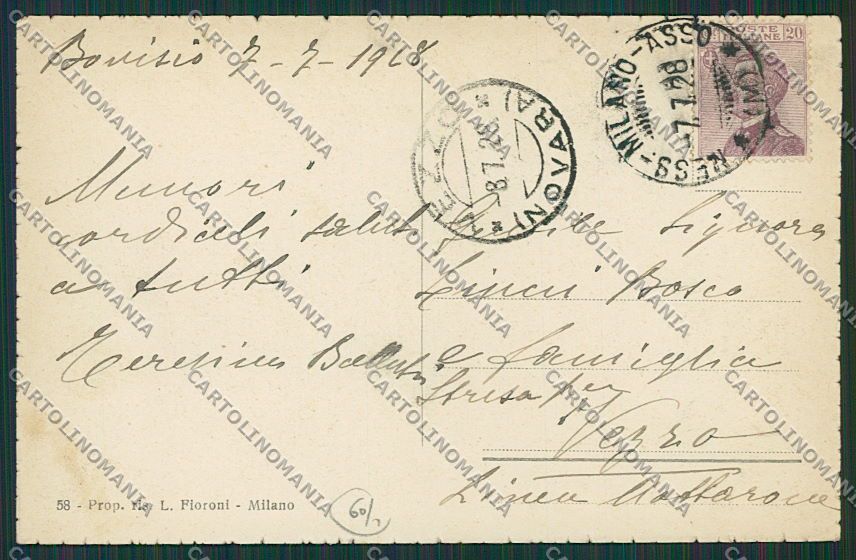 Bovisio 7-7-1928
POSTE ITALIANE 20
MILANO-ASSO
7.7.28
8.7.28
VEZZO
(NOVARA)
cordiali saluti
a tutti
Gentile Signora
Bosco
e famiglia
Stresa per
Vezzo
Linea Mottarone
58 - Prop. ris. L. Fioroni - Milano
60/-
CARTOLINOMANIA